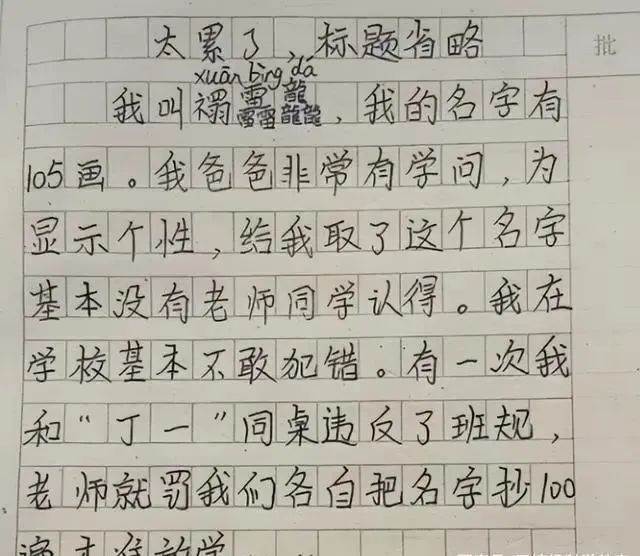 太累了，标题省略
批
xuān bìng dá
我叫禤靐龘，我的名字有
105画。我爸爸非常有学问，为
显示个性，给我取了这个名字
基本没有老师同学认得。我在
学校基本不敢犯错。有一次我
和“丁一”同桌违反了班规，
老师就罚我们各自把名字抄100
遍才准放学